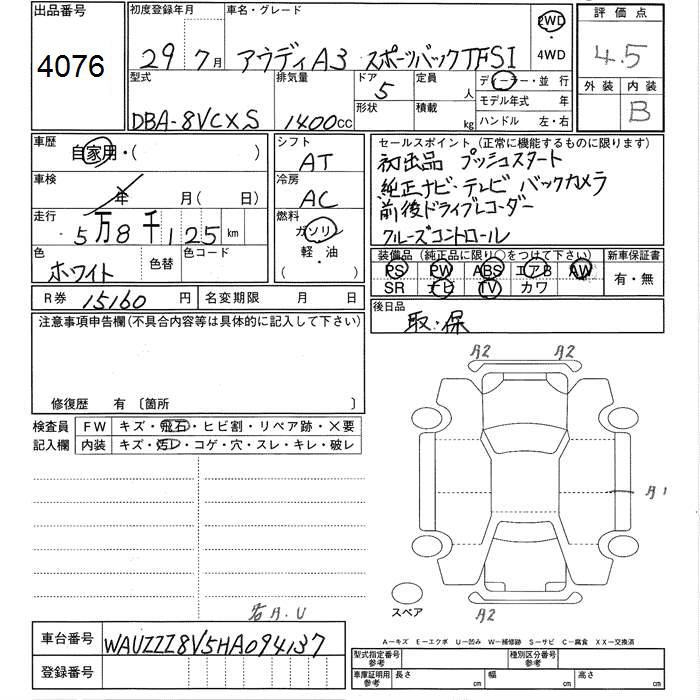 出品番号
4076
初度登録年月
29 7月
車名・グレード
アウディA3 スポーツバックTFSI
2WD
・
4WD
評価点
4.5
外装 内装
B
型式
DBA-8VCXS
排気量
1400cc
ドア
5
形状
定員
人
積載
kg
ディーラー・並行
モデル年式 年
ハンドル 左・右
車歴
自家用・( )
車検
年 月( 日)
走行
5万8千125km
色
ホワイト
色替
色コード
シフト
AT
冷房
AC
燃料
ガソリン
軽・油
( )
セールスポイント (正常に機能するものに限ります)
初出品 プッシュスタート
純正ナビ・テレビ バックカメラ
前後ドライブレコーダー
クルーズコントロール
装備品(純正品に限り○をつけて下さい)
PS PW ABS エアB AW
SR ナビ TV カワ
新車保証書
有・無
R券 15160円
名変期限 月 日
後日品
取・保
注意事項申告欄(不具合内容等は具体的に記入して下さい)
修復歴 有 〔箇所 〕
検査員
記入欄
FW キズ・飛石・ヒビ割・リペア跡・×要
内装 キズ・汚レ・コゲ・穴・スレ・キレ・破レ
A2 A2
A1
スペア
A2
各A.U
車台番号 WAUZZZ8V5HA094137
登録番号
A―キズ E―エクボ U―凹み W―補修跡 S―サビ C―腐食 XX―交換済
型式指定番号
参考
種別区分番号
参考
車庫証明用
参考
長さ cm
幅 cm
高さ cm